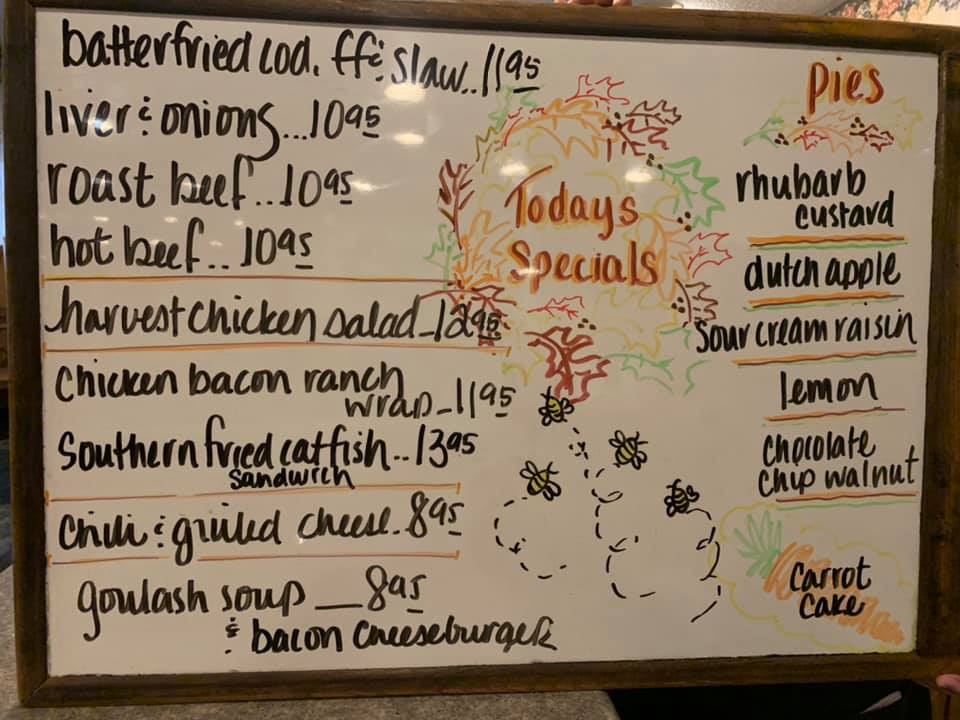 batterfried cod. ff & slaw..11 95
liver & onions...10 95
roast beef..10 95
hot beef..10 95
harvest chicken salad_12 95
chicken bacon ranch
wrap_11 95
Southern fried catfish..13 95
sandwich
Chili & grilled cheese.8 95
goulash soup __8 95
& bacon cheeseburger
Todays
Specials
pies
rhubarb
custard
dutch apple
sour cream raisin
lemon
chocolate
chip walnut
Carrot
Cake